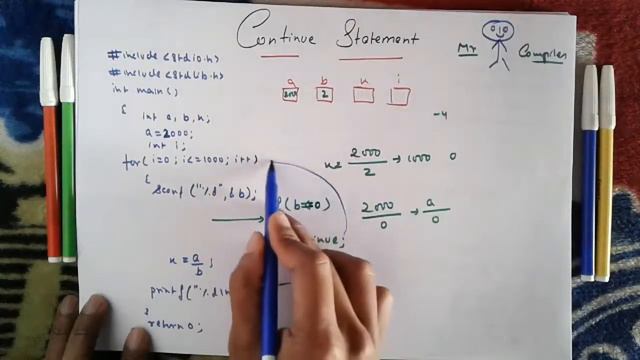 Continue Statement
Mr Compiler
#include <stdio.h>
#include <stdlib.h>
int main()
{
int a, b, x;
a=2000;
int i;
for(i=0; i<=1000; i++)
{
scanf("%d", &b);
(b==0)
inue;
x = a/b;
printf("%d\n
return 0;
a b x i
2
-4
x= 2000/2 → 1000 0
2000/0 → a/0